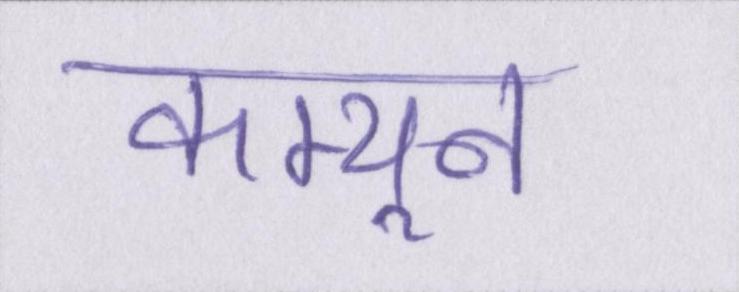 कम्यून